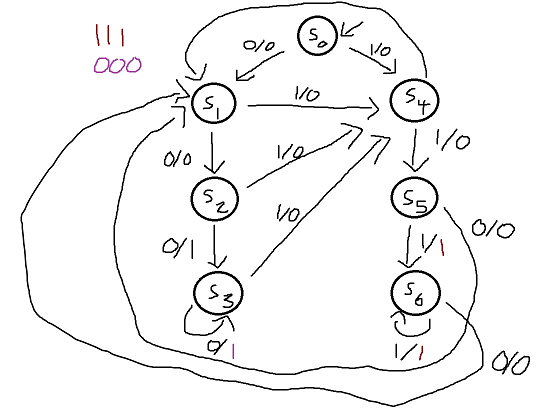 111
000
S0
0/0
1/0
S1
1/0
S4
0/0
1/0
1/0
S2
S5
0/1
1/0
1/1
0/0
S3
S6
0/1
1/1
0/0